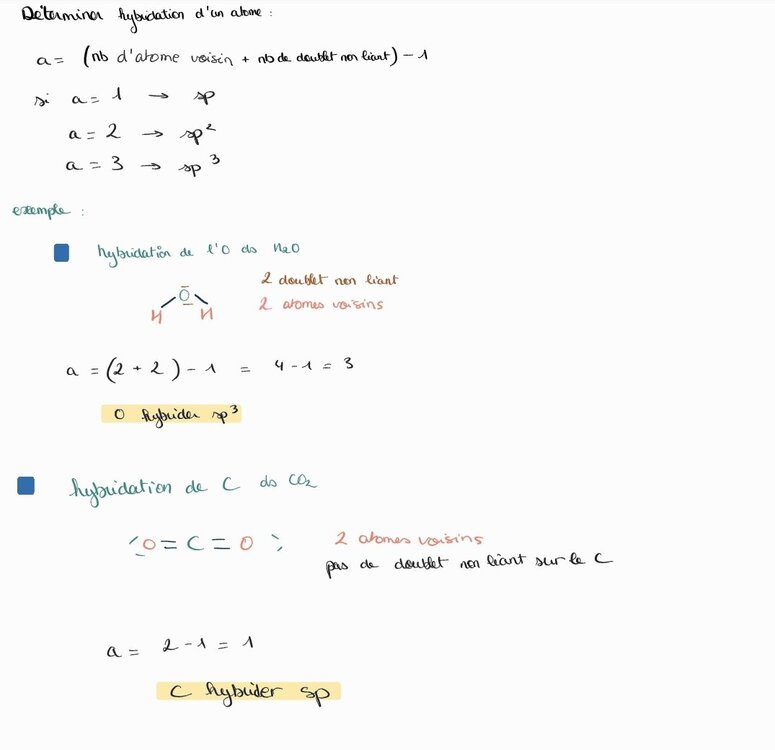 Déterminer hybridation d'un atome :
a = (nb d'atome voisin + nb de doublet non liant) - 1
si a = 1 → sp
a = 2 → sp²
a = 3 → sp³
exemple :
hybridation de l'O ds H2O
2 doublet non liant
O
2 atomes voisins
H H
a = (2 + 2) - 1 = 4 - 1 = 3
O hybrider sp³
hybridation de C ds CO2
O = C = O
2 atomes voisins
pas de doublet non liant sur le C
a = 2 - 1 = 1
C hybrider sp